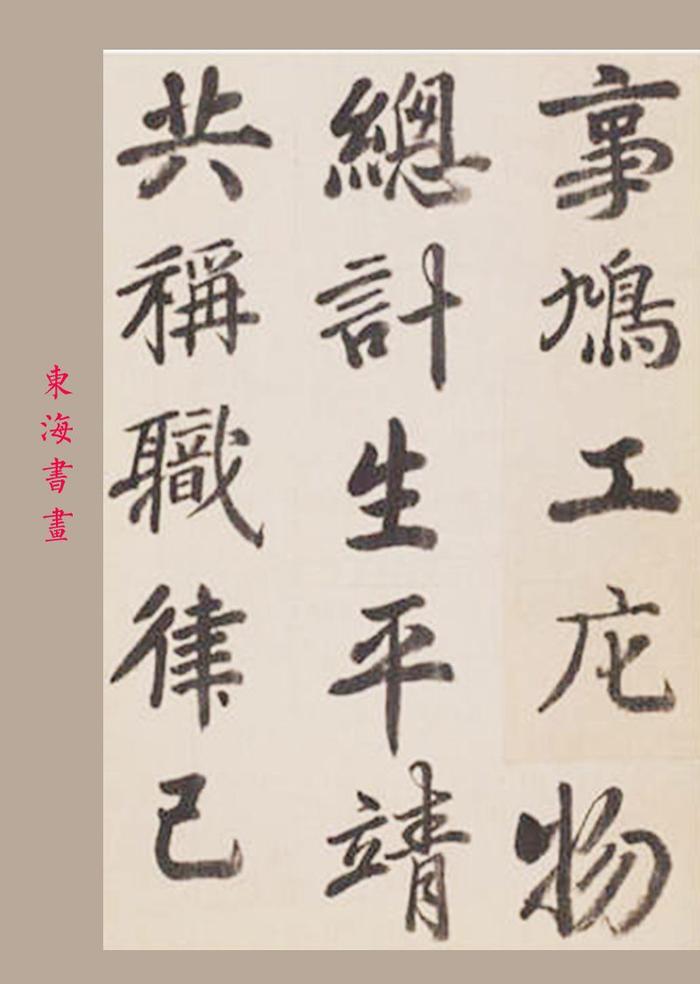 事鳩工庀物
總計生平靖
共稱職律己
東海書畫